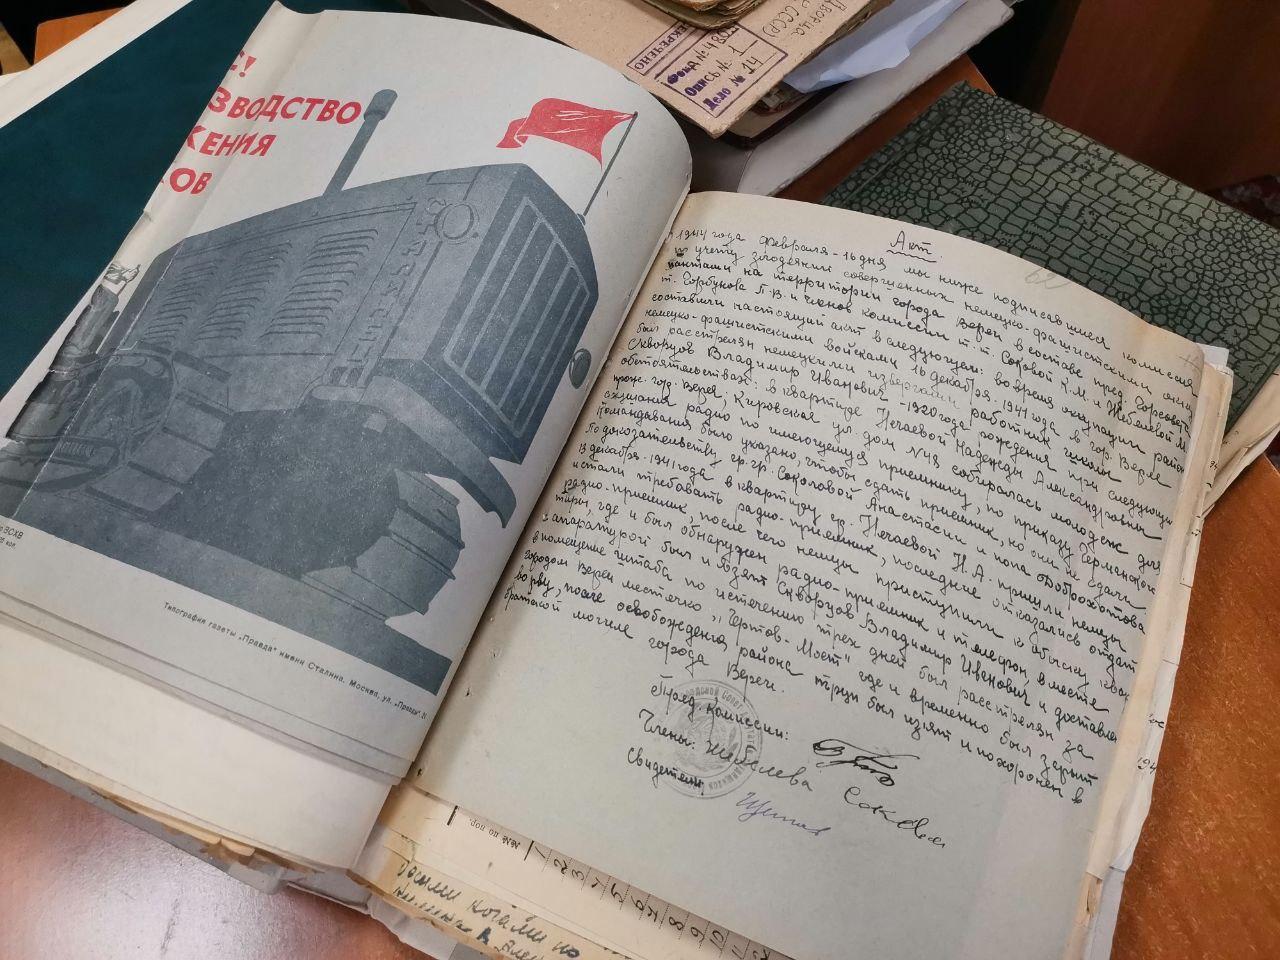 !
ЗВОДСТВО
ЖЕНИЯ
ОВ
ВСХВ
Типография газеты „Правда" имени Сталина. Москва, ул. „Правды"
СЕКРЕЧЕНО
Фонд №
Опись № 1
Дело № 14
СССР
Акт
1944 года февраля - 16 дня мы ниже подписавшиеся комиссия
по учету злодеяний совершенных немецко-фашистскими
на территории города Вереи в составе пред. Горсовета
т. Горбунова П.В. и членов комиссии т.т. Соковой К.М. и Жебелевой М.
составили настоящий акт в следующем: во время оккупации района
немецко-фашистскими войсками 16 декабря - 1941 года в гор. Верее
был расстрелян немецкими извергами работник школы
Скворцов Владимир Иванович - 1920 года рождения при следующих
обстоятельствах: в квартире Нечаевой Надежды Александровны
прож. гор. Верея, Кировская ул. дом № 48 собиралась молодеж для
слушания радио по имеющемуся приемнику, но приказу Германского
Командования было указано, чтобы сдать приемник, но они не сдали
По доказательству гр. гр. Соколовой Анастасии и попа Доброхотова
13 декабря - 1941 года в квартиру гр. Нечаевой Н.А. пришли немцы
и стали требовать радио-приемник, последние отказались отдать
радио-приемник, после чего немцы приступили к обыску
тиры, где и был обнаружен радио-приемник и телефон, вместе
с аппаратурой был и взят Скворцов Владимир Иванович и доставлен
в помещение штаба по истечению трех дней был расстрелян за
городом Верея местечко „Чертов-Мост" где и временно был зарыт
во рву, после освобождения района труп был изъят и похоронен в
братской могиле города Вереи.
Пред. Комиссии:
Члены: Жебелева
Свидетели:
№№ по пор.